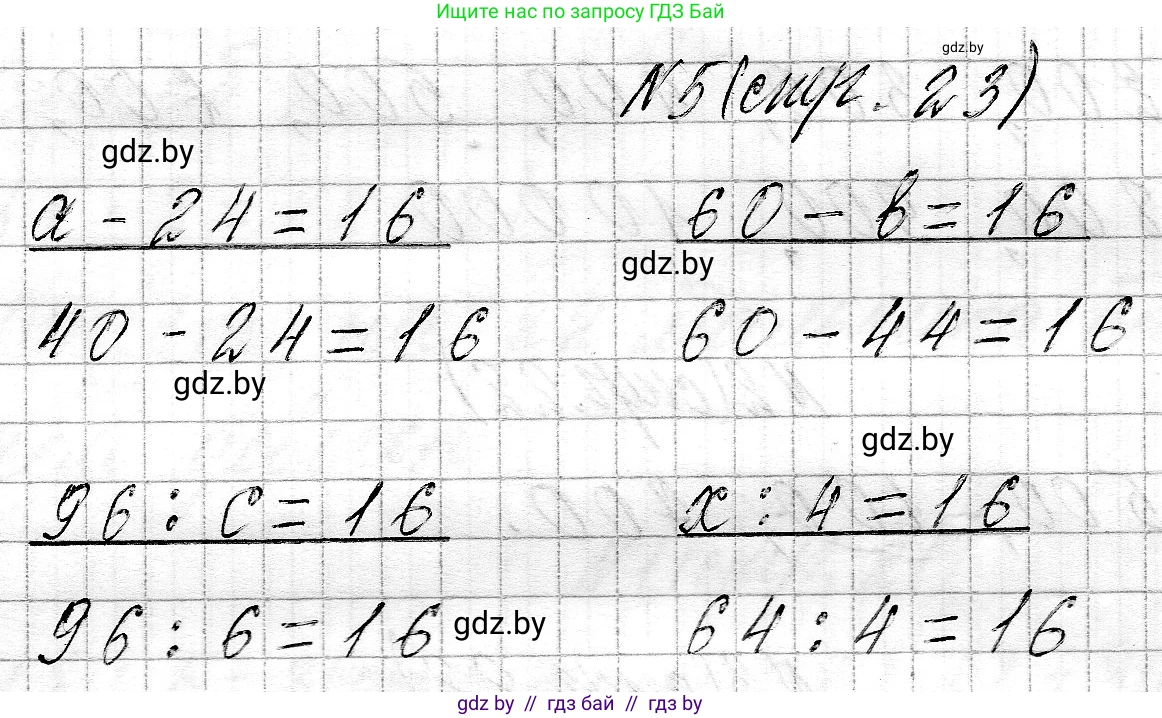 Ищите нас по запросу ГДЗ Бай
gdz.by
№5(стр. 23)
gdz.by
a - 24 = 16
60 - b = 16
gdz.by
40 - 24 = 16
60 - 44 = 16
gdz.by
gdz.by
96 : c = 16
x : 4 = 16
96 : 6 = 16
gdz.by
64 : 4 = 16
gdz by // гдз бай // гдз by